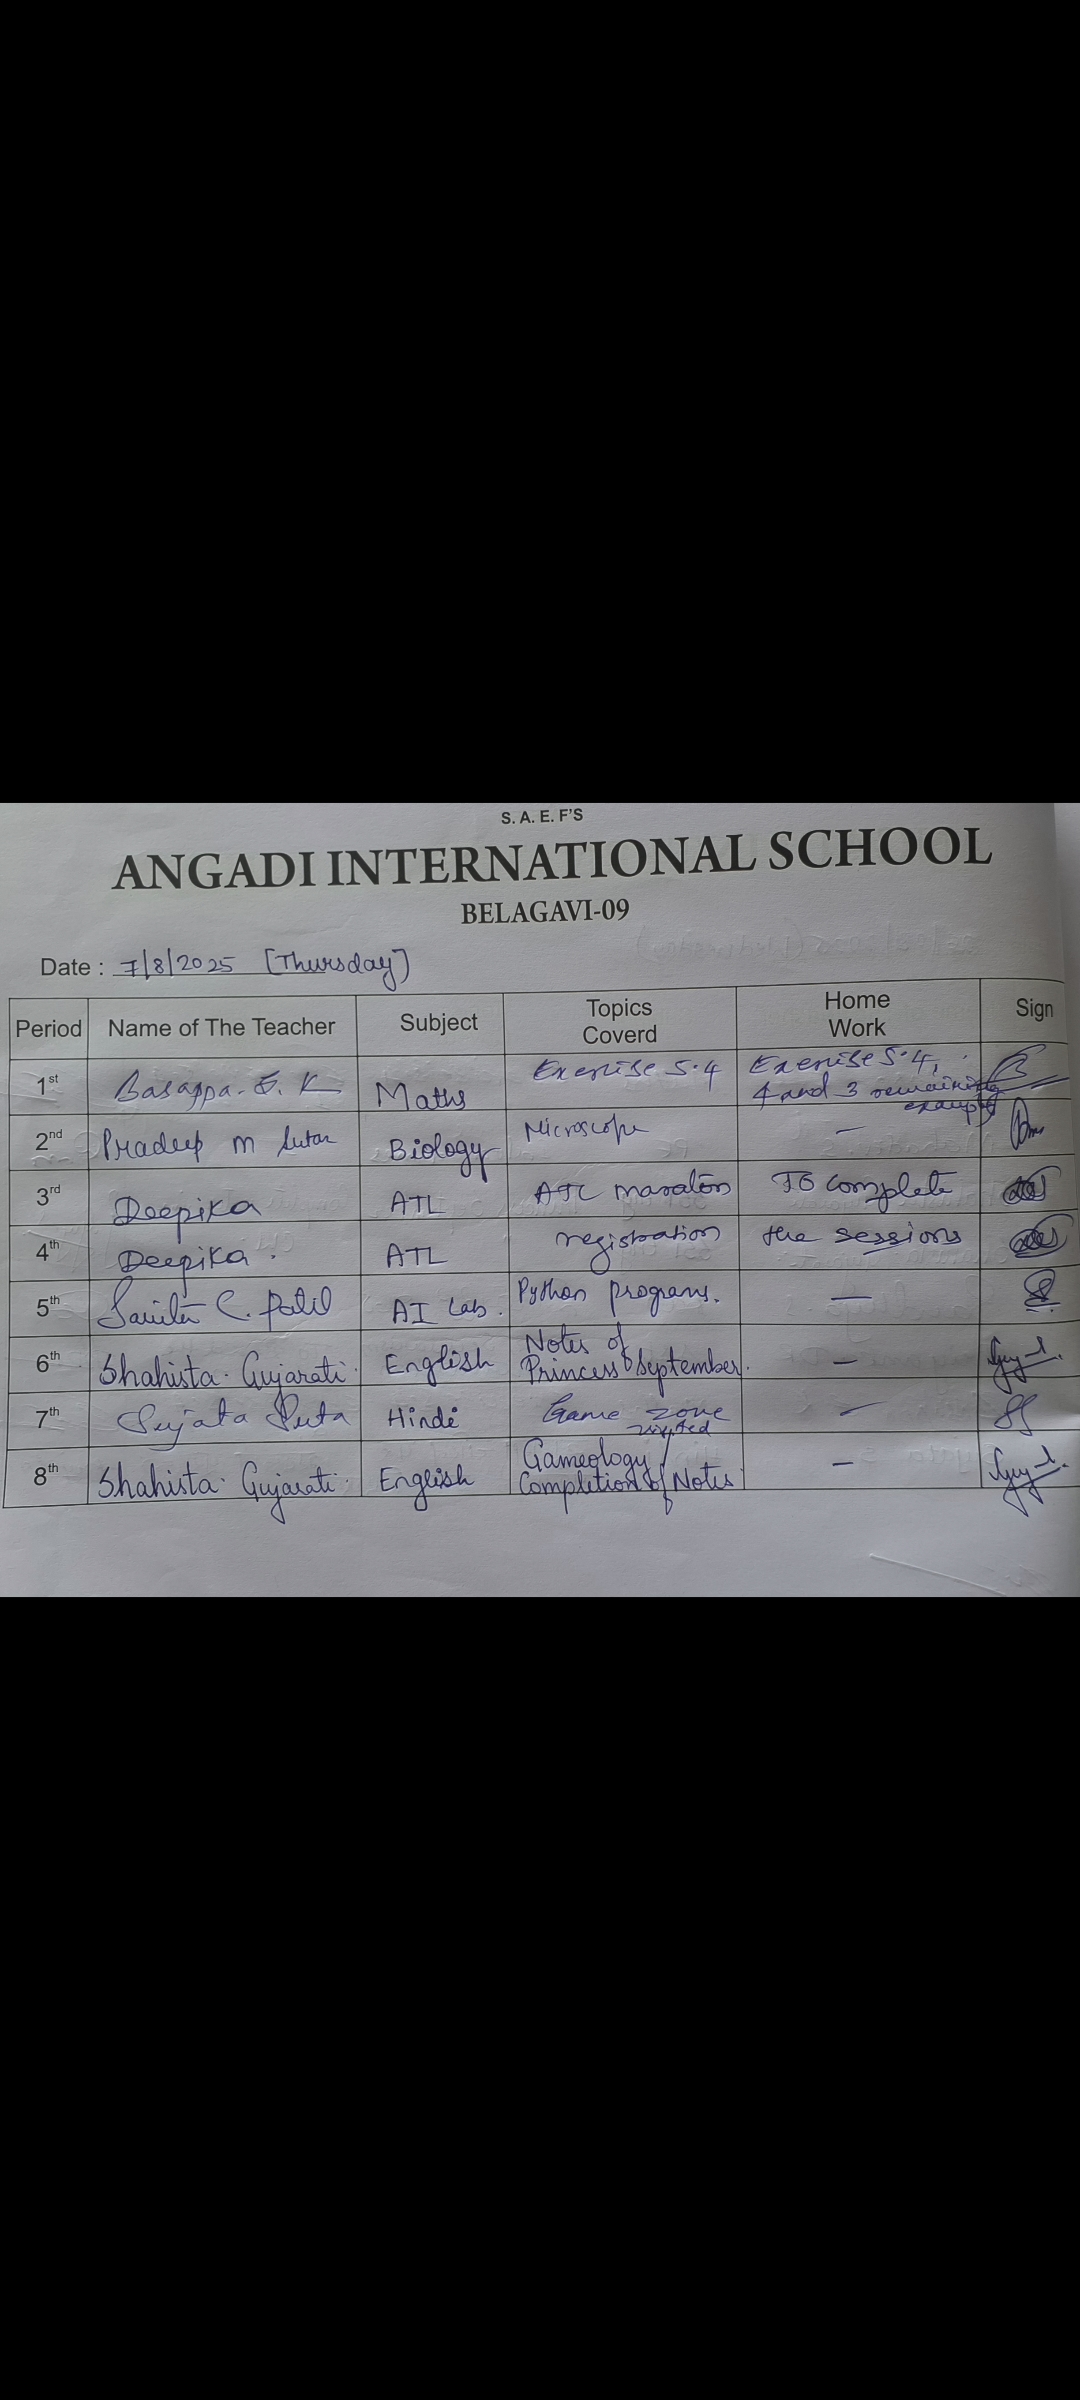 S. A. E. F'S
ANGADI INTERNATIONAL SCHOOL
BELAGAVI-09
Date : 7/8/2025 [Thursday]
Period Name of The Teacher Subject Topics Coverd Home Work Sign
1st Basappa. K Maths Exercise 5.4 Exercise 5.4, 4 and 3 remaining example
2nd Pradeep m Sutar Biology Microscope —
3rd Deepika ATL ATL maraton To complete
4th Deepika . ATL registration the sessions
5th C. Patil AI Lab . Python programs. —
6th Shahista. Gujarati. English Notes of Princess September. —
7th Sujata Hindi Game zone visited —
8th Shahista. Gujarati. English Gameology / Completion of Notes. —